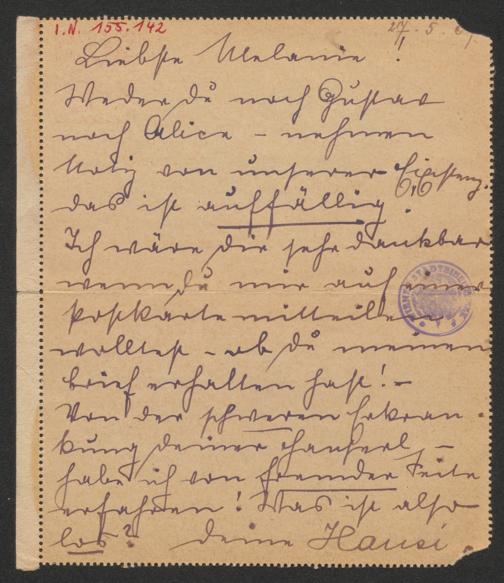 I.N. 155.142
27. 5.
Liebste Melanie!
Weder du noch Gustav
noch Alice – nehmen
Notiz von unserer Existenz.
das ist auffällig.
Ich wäre dir sehr dankbar
wenn du mir auf einer
Postkarte mitteilen
wolltest – ob du meinen
Brief erhalten hast! –
Von der schweren Erkran-
kung deiner –
habe ich von fremder Seite
erfahren! Was ist also
los? deine Hansi